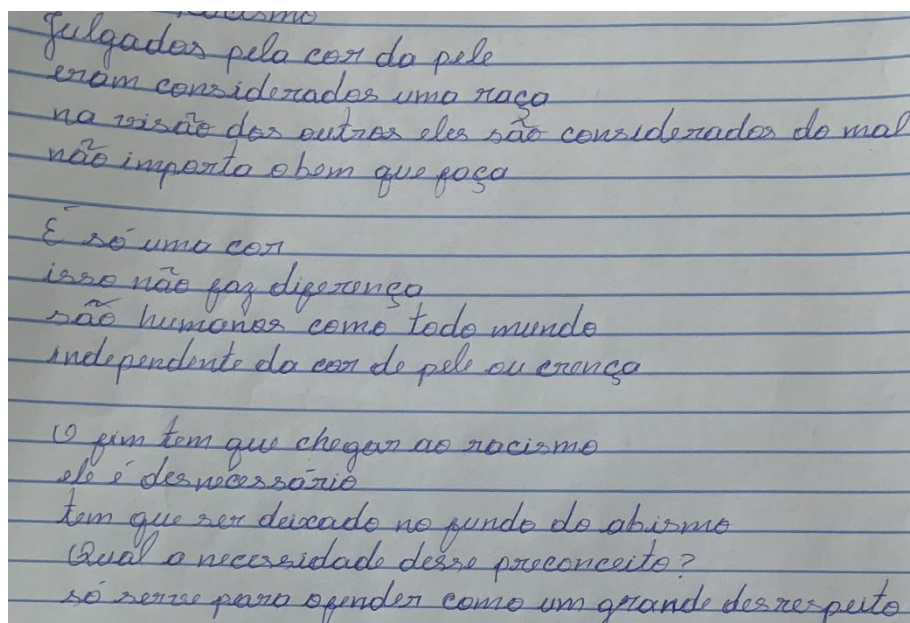 Racismo
Julgados pela cor da pele
eram considerados uma raça
na visão dos outros eles são considerados do mal
não importa o bem que faça
É só uma cor
isso não faz diferença
são humanos como todo mundo
independente da cor de pele ou crença
O fim tem que chegar ao racismo
ele é desnecessário
tem que ser deixado no fundo do abismo
Qual a necessidade desse preconceito?
só serve para ofender como um grande desrespeito